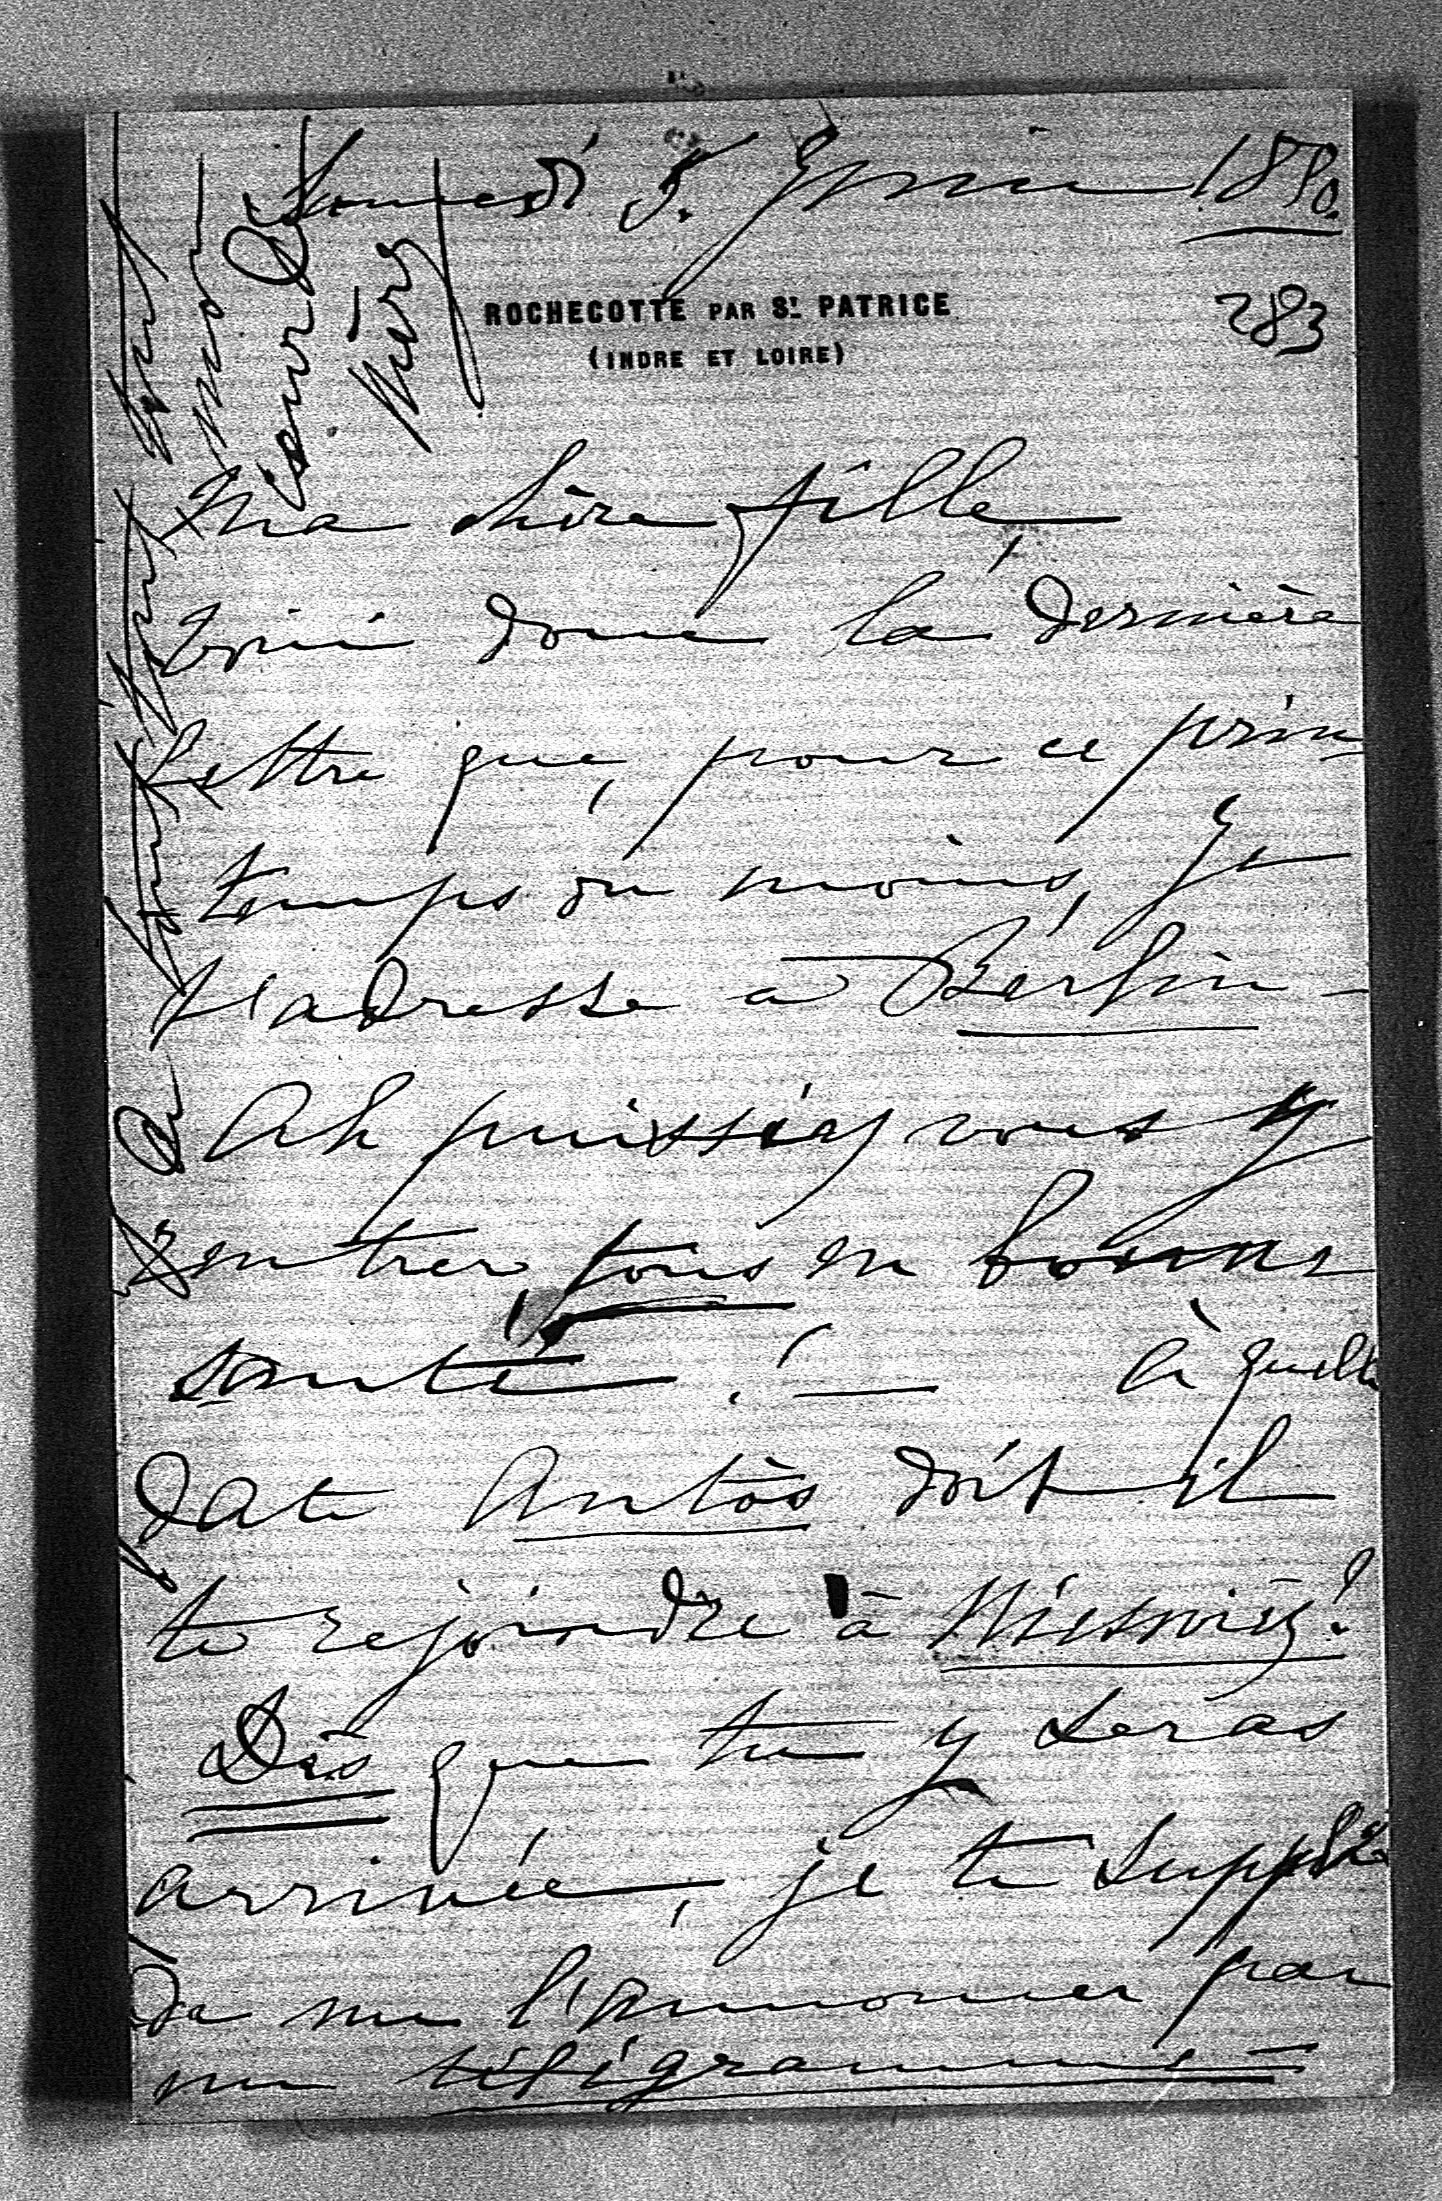 Samedi 5. Juin 1880.
283
ROCHECOTTE PAR St PATRICE
(INDRE ET LOIRE)
Ma chère fille,
voici donc la dernière
lettre que, pour ce prin
temps du moins, je
t'adresse à Berlin –
Ah puissiez vous y
rentrer, tous en bonne
santé ! — à quelle
date Antös doit il
te rejoindre à Nieswiez?
Dès que tu y seras
arrivée, je te supplie
de me l'annoncer par
un télégramme =
de tout tout tout tout
mon
cœur
Mère